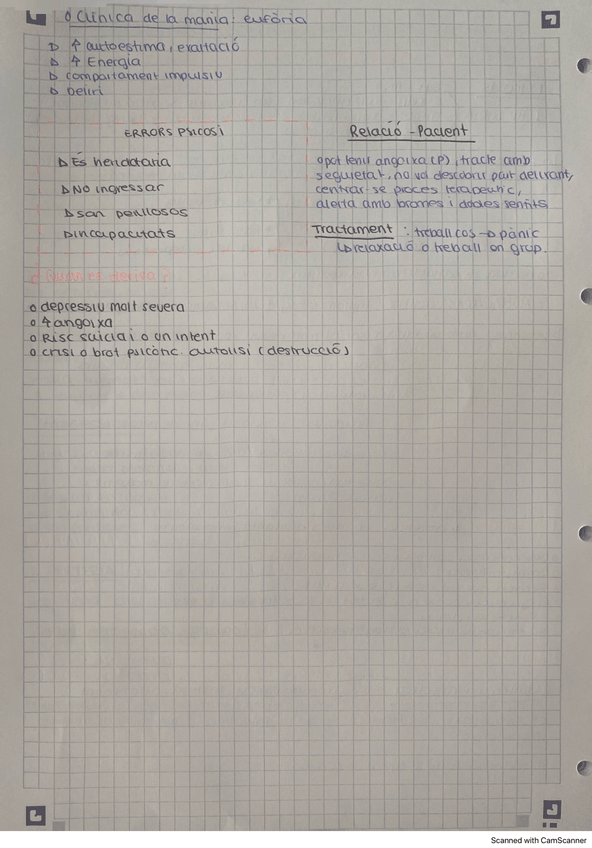 o Clínica de la mania: eufòria
▷ ↑ autoestima, exaltació
▷ ↑ Energia
▷ comportament impulsiu
▷ Deliri
ERRORS PSICOSI
▷ És heriditaria
▷ NO ingressar
▷ san perillosos
▷ incapacitats
Relació - Pacient
o pot tenir angoixa (P), tracte amb
seguretat, no vol descobrir part delirant,
centrar-se procés terapeutic,
alerta amb bromes i dobles sentits
Tractament : treball cos → pànic
↳ relaxació o treball en grup.
o Quan es deriva?
o depressiu molt severa
o ↑ angoixa
o Risc suicidi o un intent
o crisi o brot psicòtic. autolisi (destrucció)
Scanned with CamScanner